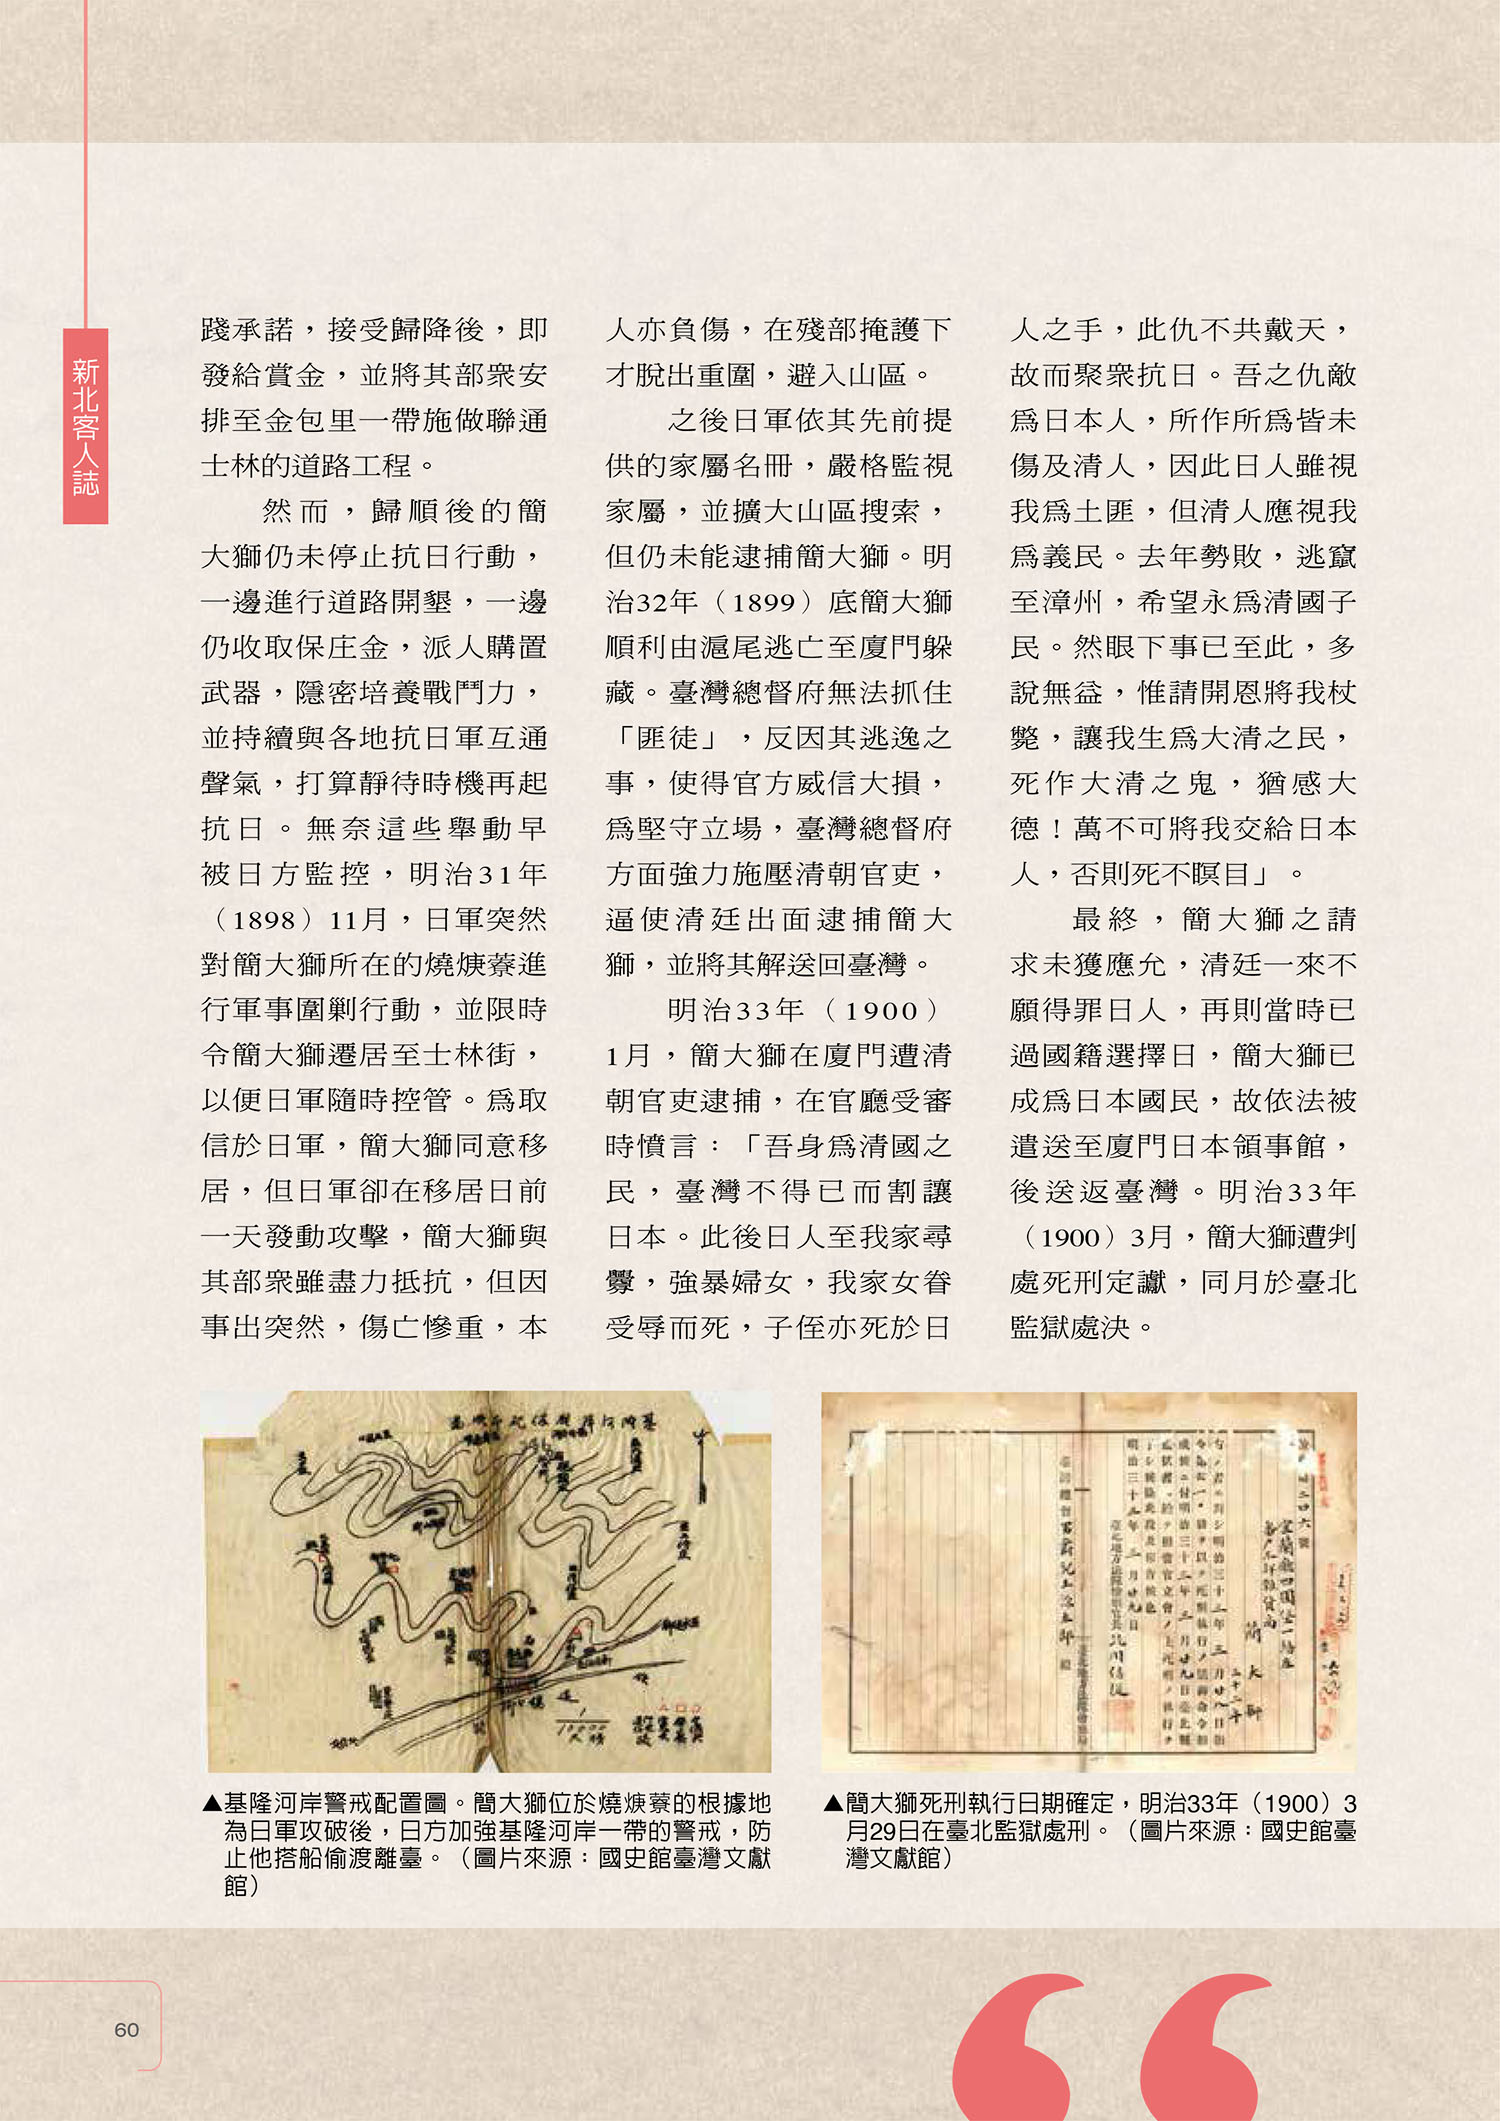 新北客人誌
踐承諾，接受歸降後，即
發給賞金，並將其部眾安
排至金包里一帶施做聯通
士林的道路工程。
然而，歸順後的簡
大獅仍未停止抗日行動，
一邊進行道路開墾，一邊
仍收取保庄金，派人購置
武器，隱密培養戰鬥力，
並持續與各地抗日軍互通
聲氣，打算靜待時機再起
抗日。無奈這些舉動早
被日方監控，明治31年
（1898）11月，日軍突然
對簡大獅所在的燒焿藔進
行軍事圍剿行動，並限時
令簡大獅遷居至士林街，
以便日軍隨時控管。為取
信於日軍，簡大獅同意移
居，但日軍卻在移居日前
一天發動攻擊，簡大獅與
其部眾雖盡力抵抗，但因
事出突然，傷亡慘重，本
人亦負傷，在殘部掩護下
才脫出重圍，避入山區。
之後日軍依其先前提
供的家屬名冊，嚴格監視
家屬，並擴大山區搜索，
但仍未能逮捕簡大獅。明
治32年（1899）底簡大獅
順利由滬尾逃亡至廈門躲
藏。臺灣總督府無法抓住
「匪徒」，反因其逃逸之
事，使得官方威信大損，
為堅守立場，臺灣總督府
方面強力施壓清朝官吏，
逼使清廷出面逮捕簡大
獅，並將其解送回臺灣。
明治33年（1900）
1月，簡大獅在廈門遭清
朝官吏逮捕，在官廳受審
時憤言：「吾身為清國之
民，臺灣不得已而割讓
日本。此後日人至我家尋
釁，強暴婦女，我家女眷
受辱而死，子侄亦死於日
人之手，此仇不共戴天，
故而聚眾抗日。吾之仇敵
為日本人，所作所為皆未
傷及清人，因此日人雖視
我為土匪，但清人應視我
為義民。去年勢敗，逃竄
至漳州，希望永為清國子
民。然眼下事已至此，多
說無益，惟請開恩將我杖
斃，讓我生為大清之民，
死作大清之鬼，猶感大
德！萬不可將我交給日本
人，否則死不瞑目」。
最終，簡大獅之請
求未獲應允，清廷一來不
願得罪日人，再則當時已
過國籍選擇日，簡大獅已
成為日本國民，故依法被
遣送至廈門日本領事館，
後送返臺灣。明治33年
（1900）3月，簡大獅遭判
處死刑定讞，同月於臺北
監獄處決。
▲基隆河岸警戒配置圖。簡大獅位於燒焿藔的根據地
為日軍攻破後，日方加強基隆河岸一帶的警戒，防
止他搭船偷渡離臺。（圖片來源：國史館臺灣文獻
館）
▲簡大獅死刑執行日期確定，明治33年（1900）3
月29日在臺北監獄處刑。（圖片來源：國史館臺
灣文獻館）
60